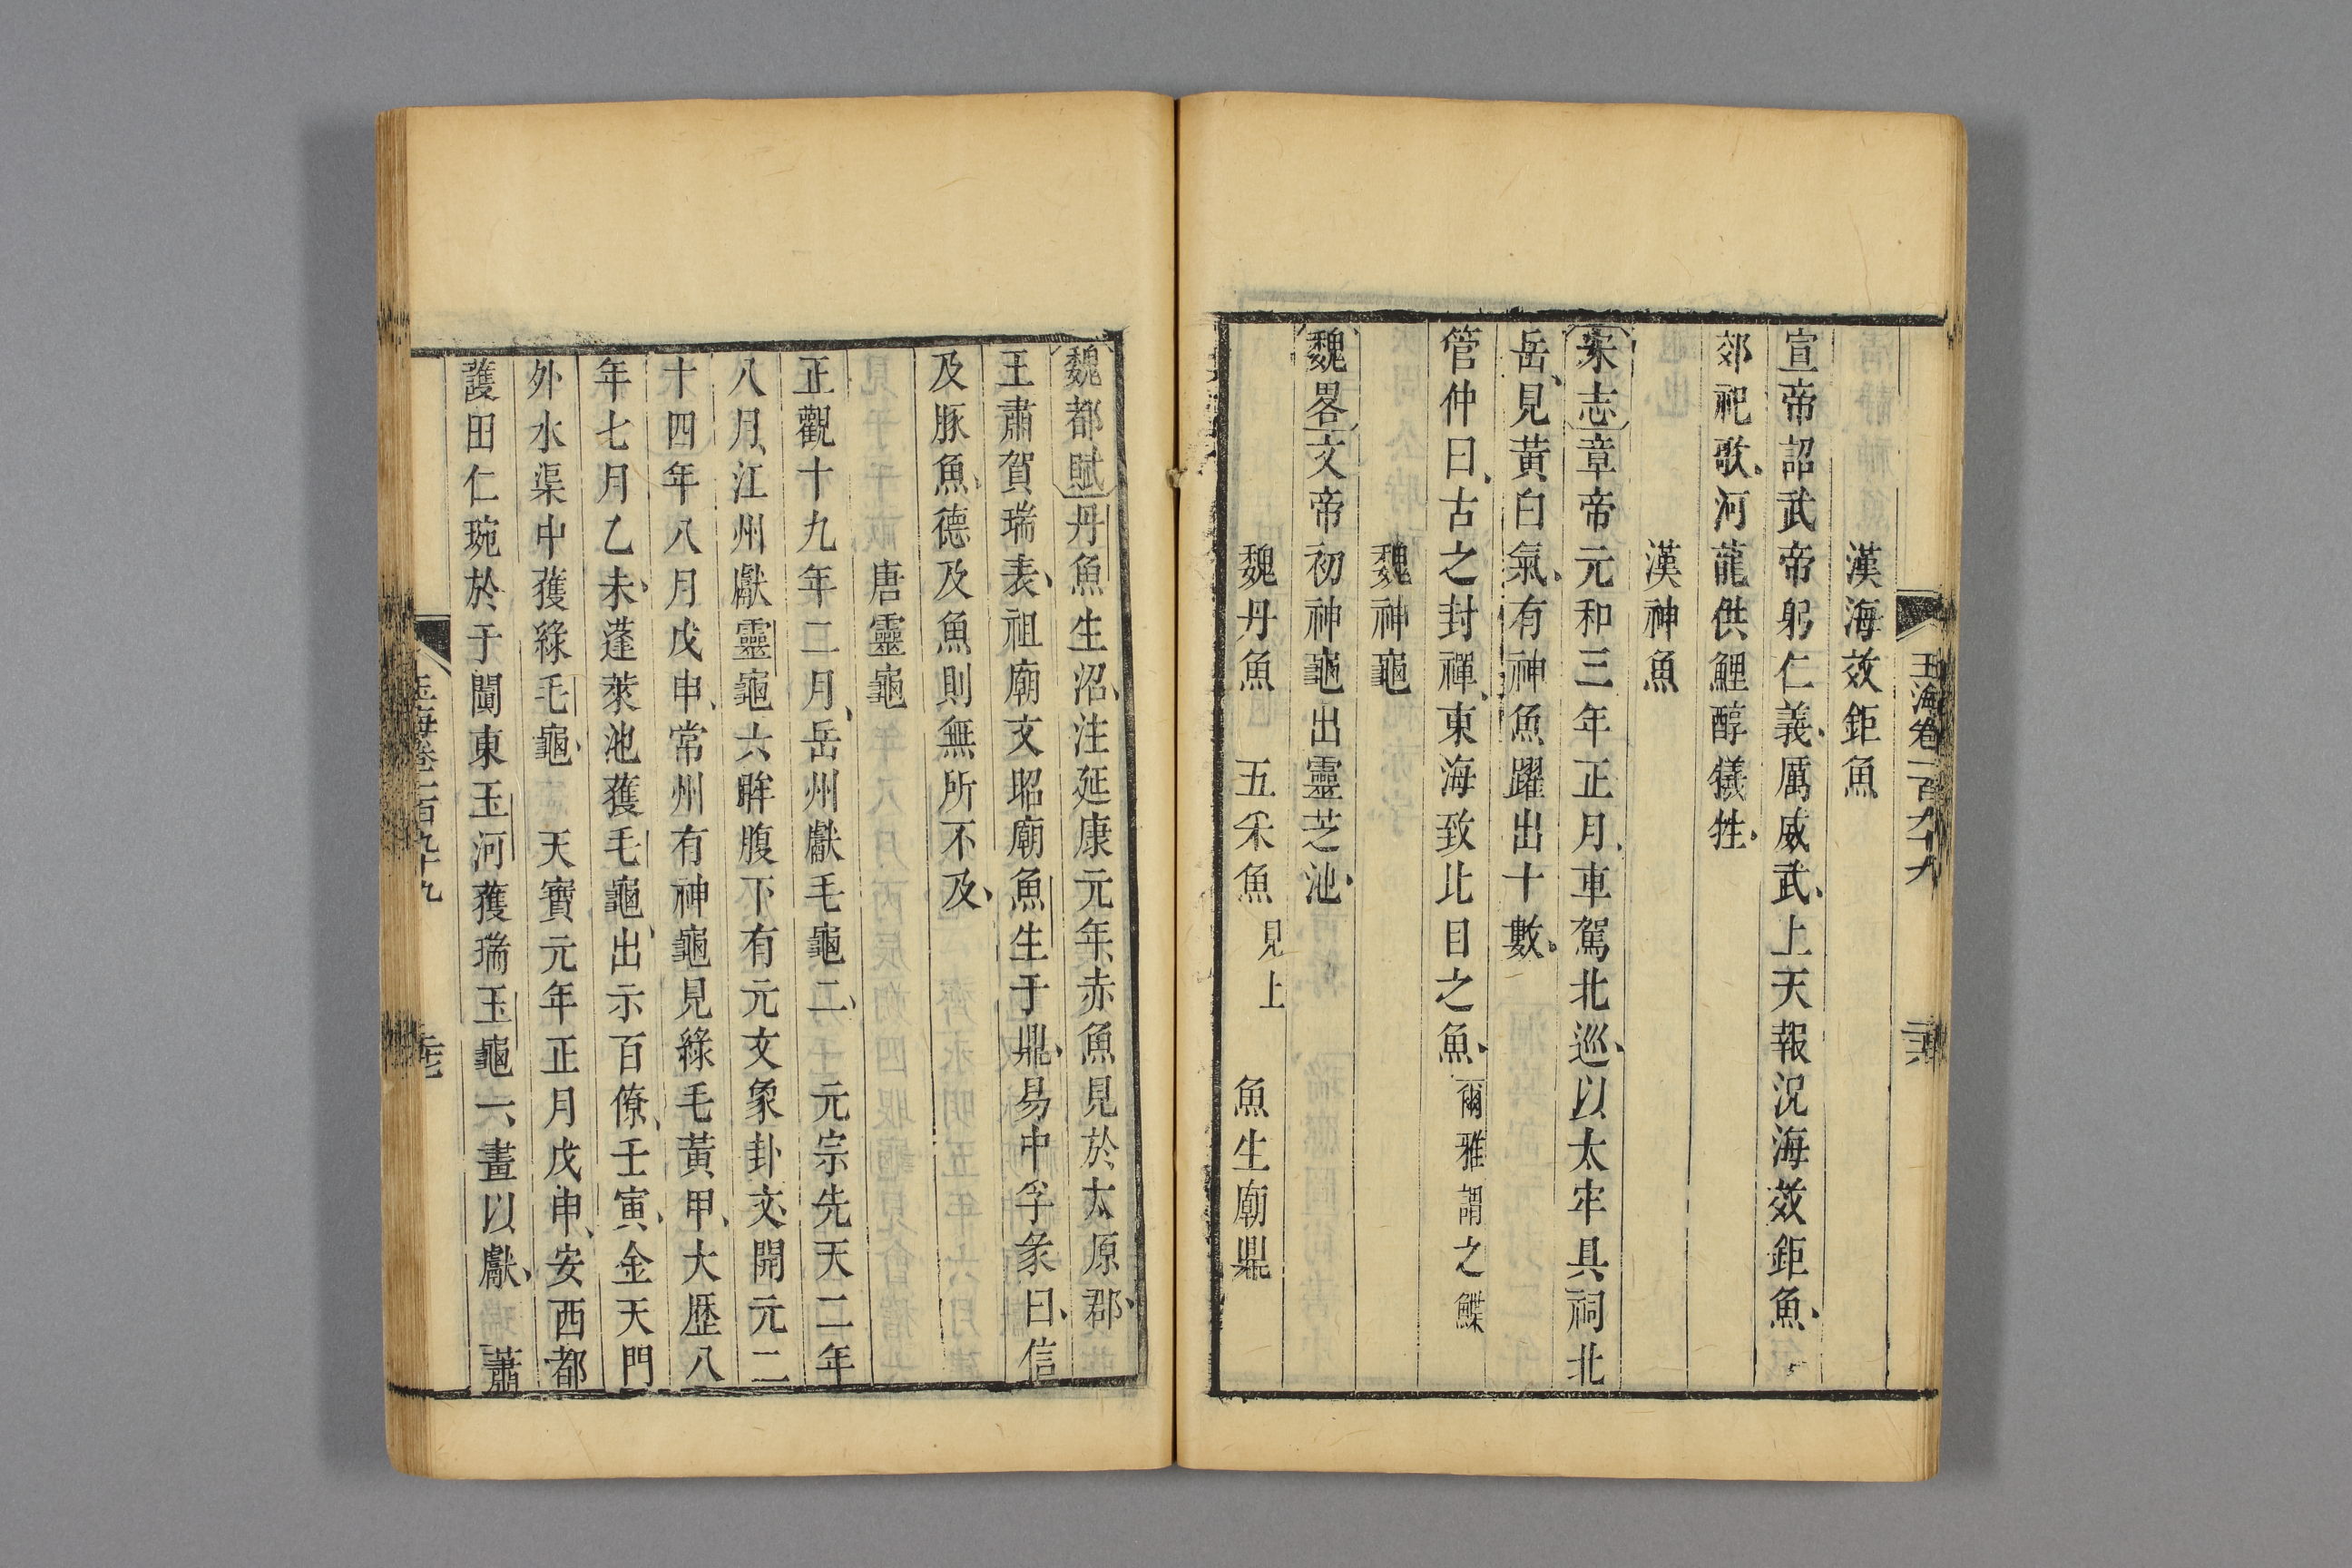 玉海卷一百九十九
漢海效鉅魚
宣帝詔武帝躬仁義厲威武上天報況海效鉅魚
郊祀歌河龍供鯉醇犧牲
漢神魚
宋志章帝元和三年正月車駕北巡以太牢具祠北
岳見黃白氣有神魚躍出十數
管仲曰古之封禪東海致比目之魚爾雅謂之鰈
魏神龜
魏畧文帝初神龜出靈芝池
魏丹魚 五采魚見上 魚生廟鼎
魏都賦丹魚生沼注延康元年赤魚見於太原郡
王肅賀瑞表祖廟文昭廟魚生于鼎易中孚彖曰信
及豚魚德及魚則無所不及
唐靈龜
正觀十九年二月岳州獻毛龜二 元宗先天二年
八月江州獻靈龜六眸腹下有元文象卦文開元二
十四年八月戊申常州有神龜見綠毛黃甲大歷八
年七月乙未蓬萊池獲毛龜出示百僚壬寅金天門
外水渠中獲綠毛龜 天寶元年正月戊申安西都
護田仁琬於于闐東玉河獲瑞玉龜一畫以獻 蕭
玉海卷一百九十九